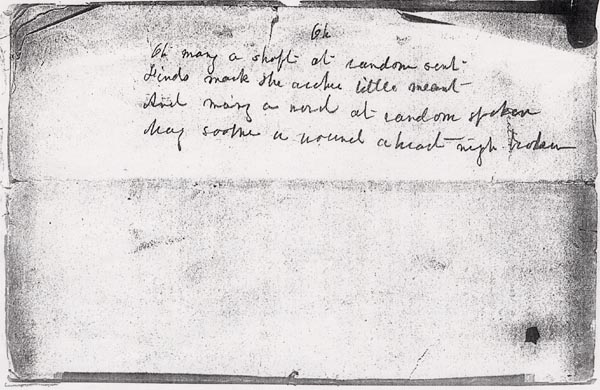 Oh
Oh many a shaft at random sent
Finds mark the archer little meant
And many a word at random spoken
May soothe a wound a heart nigh broken